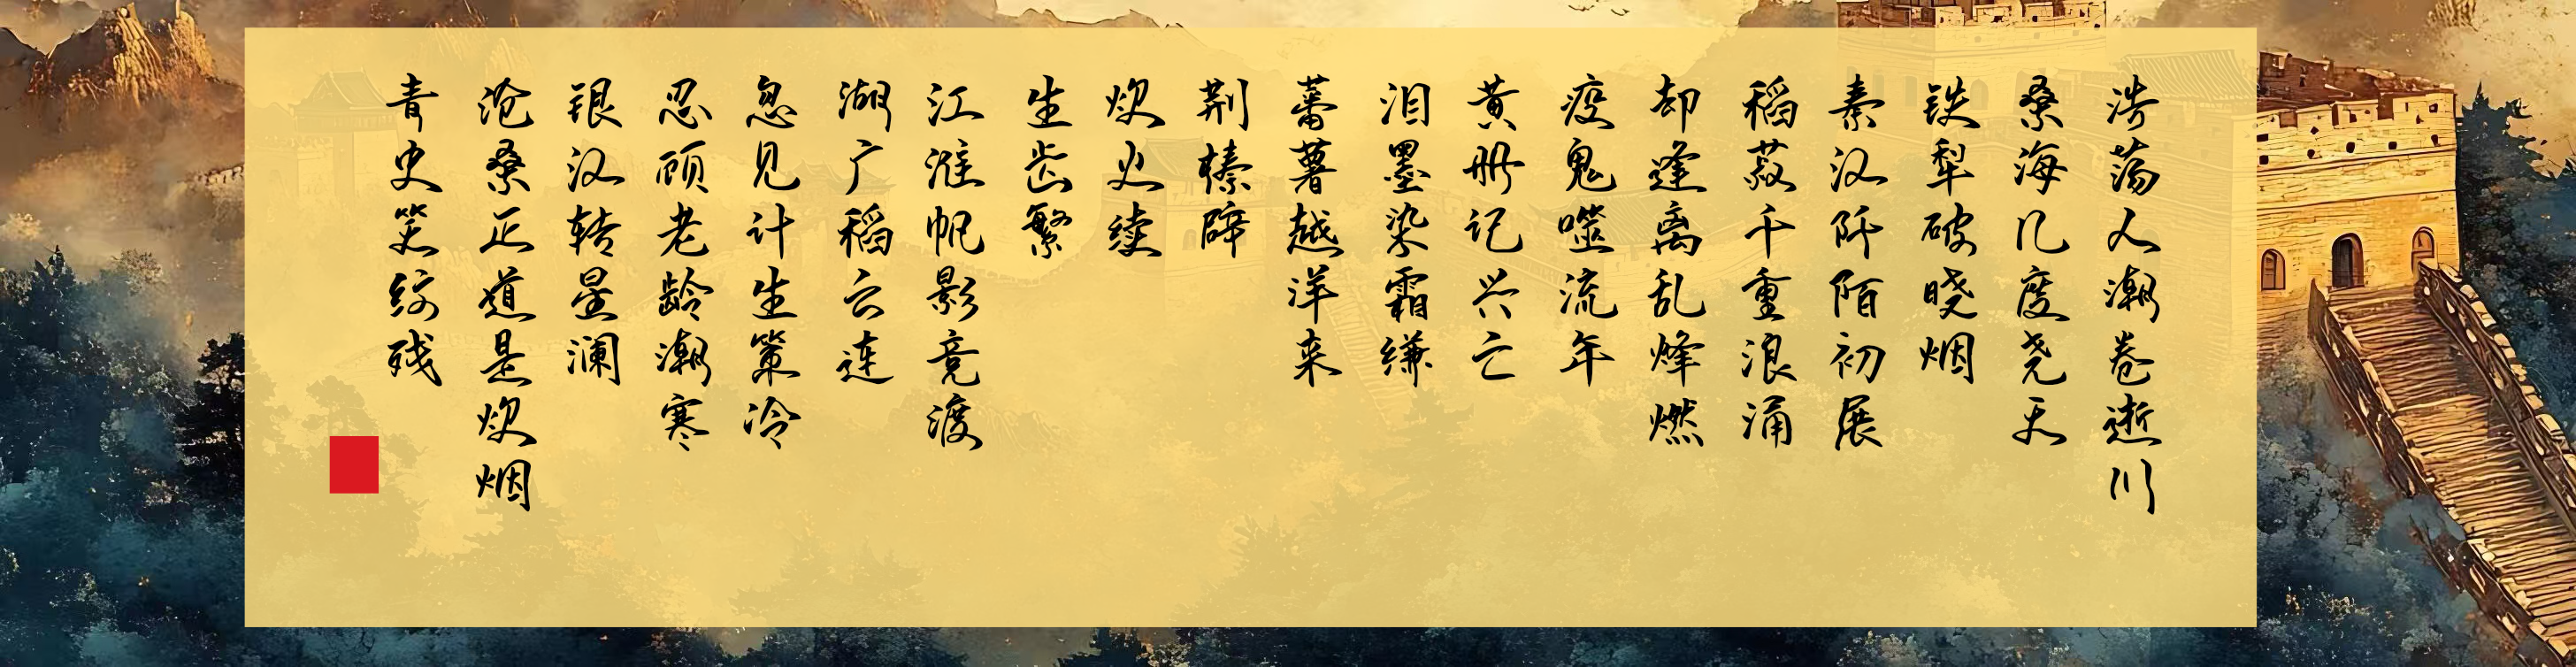 浩荡人潮卷逝川
桑海几度尧天
铁犁破晓烟
秦汉阡陌初展
稻菽千重浪涌
却逢离乱烽燃
疫鬼噬流年
黄册记兴亡
泪墨染霜缣
蕃薯越洋来
荆榛辟
炊火续
生齿繁
江淮帆影竞渡
湖广稻云连
忽见计生策冷
忍顾老龄潮寒
银汉转星澜
沧桑正道是炊烟
青史笑纹残